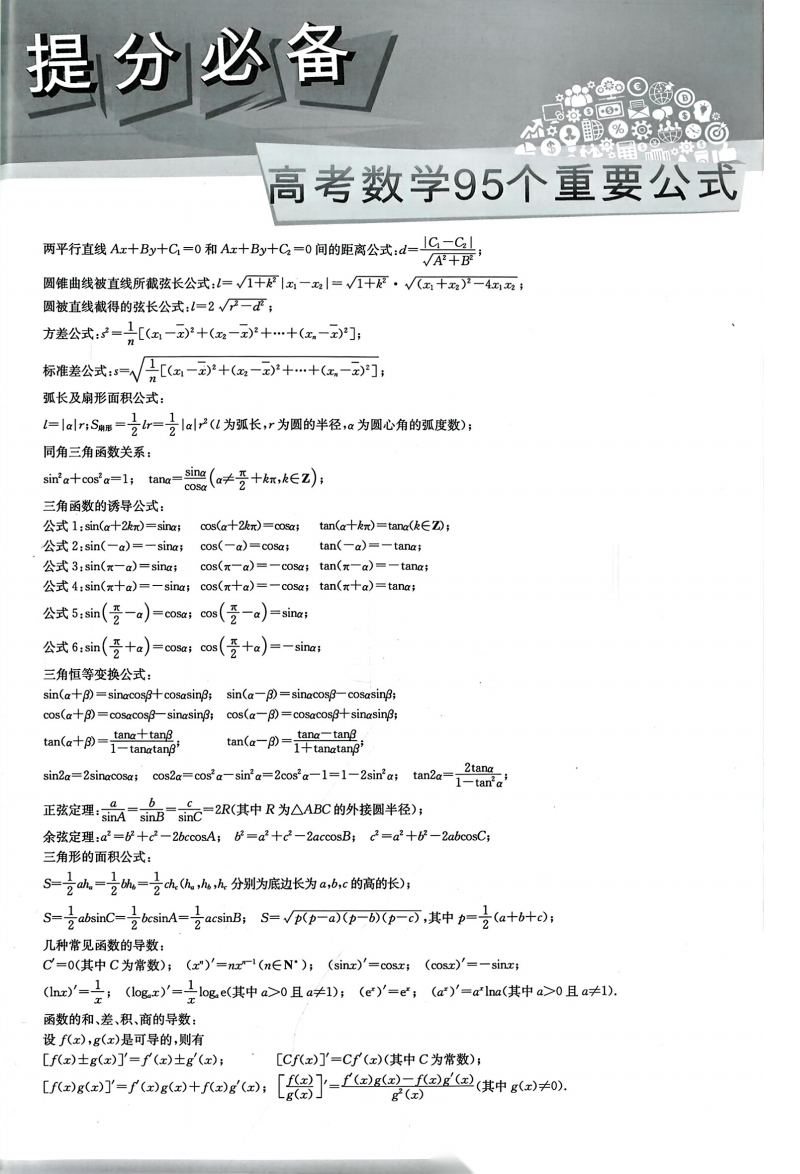 提分必备
高考数学95个重要公式
两平行直线 Ax+By+C₁=0 和 Ax+By+C₂=0 间的距离公式:d=|C₁-C₂|/√(A²+B²);
圆锥曲线被直线所截弦长公式:l=√(1+k²)|x₁-x₂|=√(1+k²)·√((x₁+x₂)²-4x₁x₂);
圆被直线截得的弦长公式:l=2√(r²-d²);
方差公式:s²=1/n[(x₁-x̄)²+(x₂-x̄)²+…+(xₙ-x̄)²];
标准差公式:s=√(1/n[(x₁-x̄)²+(x₂-x̄)²+…+(xₙ-x̄)²]);
弧长及扇形面积公式:
l=|α|r;S扇形=1/2lr=1/2|α|r²(l 为弧长,r 为圆的半径,α 为圆心角的弧度数);
同角三角函数关系:
sin²α+cos²α=1; tanα=sinα/cosα(α≠π/2+kπ,k∈Z);
三角函数的诱导公式:
公式 1:sin(α+2kπ)=sinα; cos(α+2kπ)=cosα; tan(α+kπ)=tanα(k∈Z);
公式 2:sin(-α)=-sinα; cos(-α)=cosα; tan(-α)=-tanα;
公式 3:sin(π-α)=sinα; cos(π-α)=-cosα; tan(π-α)=-tanα;
公式 4:sin(π+α)=-sinα; cos(π+α)=-cosα; tan(π+α)=tanα;
公式 5:sin(π/2-α)=cosα; cos(π/2-α)=sinα;
公式 6:sin(π/2+α)=cosα; cos(π/2+α)=-sinα;
三角恒等变换公式:
sin(α+β)=sinαcosβ+cosαsinβ; sin(α-β)=sinαcosβ-cosαsinβ;
cos(α+β)=cosαcosβ-sinαsinβ; cos(α-β)=cosαcosβ+sinαsinβ;
tan(α+β)=(tanα+tanβ)/(1-tanαtanβ); tan(α-β)=(tanα-tanβ)/(1+tanαtanβ);
sin2α=2sinαcosα; cos2α=cos²α-sin²α=2cos²α-1=1-2sin²α; tan2α=2tanα/(1-tan²α);
正弦定理:a/sinA=b/sinB=c/sinC=2R(其中 R 为△ABC 的外接圆半径);
余弦定理:a²=b²+c²-2bccosA; b²=a²+c²-2accosB; c²=a²+b²-2abcosC;
三角形的面积公式:
S=1/2ahₐ=1/2bh_b=1/2ch_c(hₐ,h_b,h_c 分别为底边长为 a,b,c 的高的长);
S=1/2absinC=1/2bcsinA=1/2acsinB; S=√(p(p-a)(p-b)(p-c)),其中 p=1/2(a+b+c);
几种常见函数的导数:
C′=0(其中 C 为常数); (xⁿ)′=nxⁿ⁻¹(n∈N*); (sinx)′=cosx; (cosx)′=-sinx;
(lnx)′=1/x; (logₐx)′=1/x logₐe(其中 a>0 且 a≠1); (eˣ)′=eˣ; (aˣ)′=aˣlna(其中 a>0 且 a≠1).
函数的和、差、积、商的导数:
设 f(x),g(x)是可导的,则有
[f(x)±g(x)]′=f′(x)±g′(x); [Cf(x)]′=Cf′(x)(其中 C 为常数);
[f(x)g(x)]′=f′(x)g(x)+f(x)g′(x); [f(x)/g(x)]′=(f′(x)g(x)-f(x)g′(x))/g²(x)(其中 g(x)≠0).